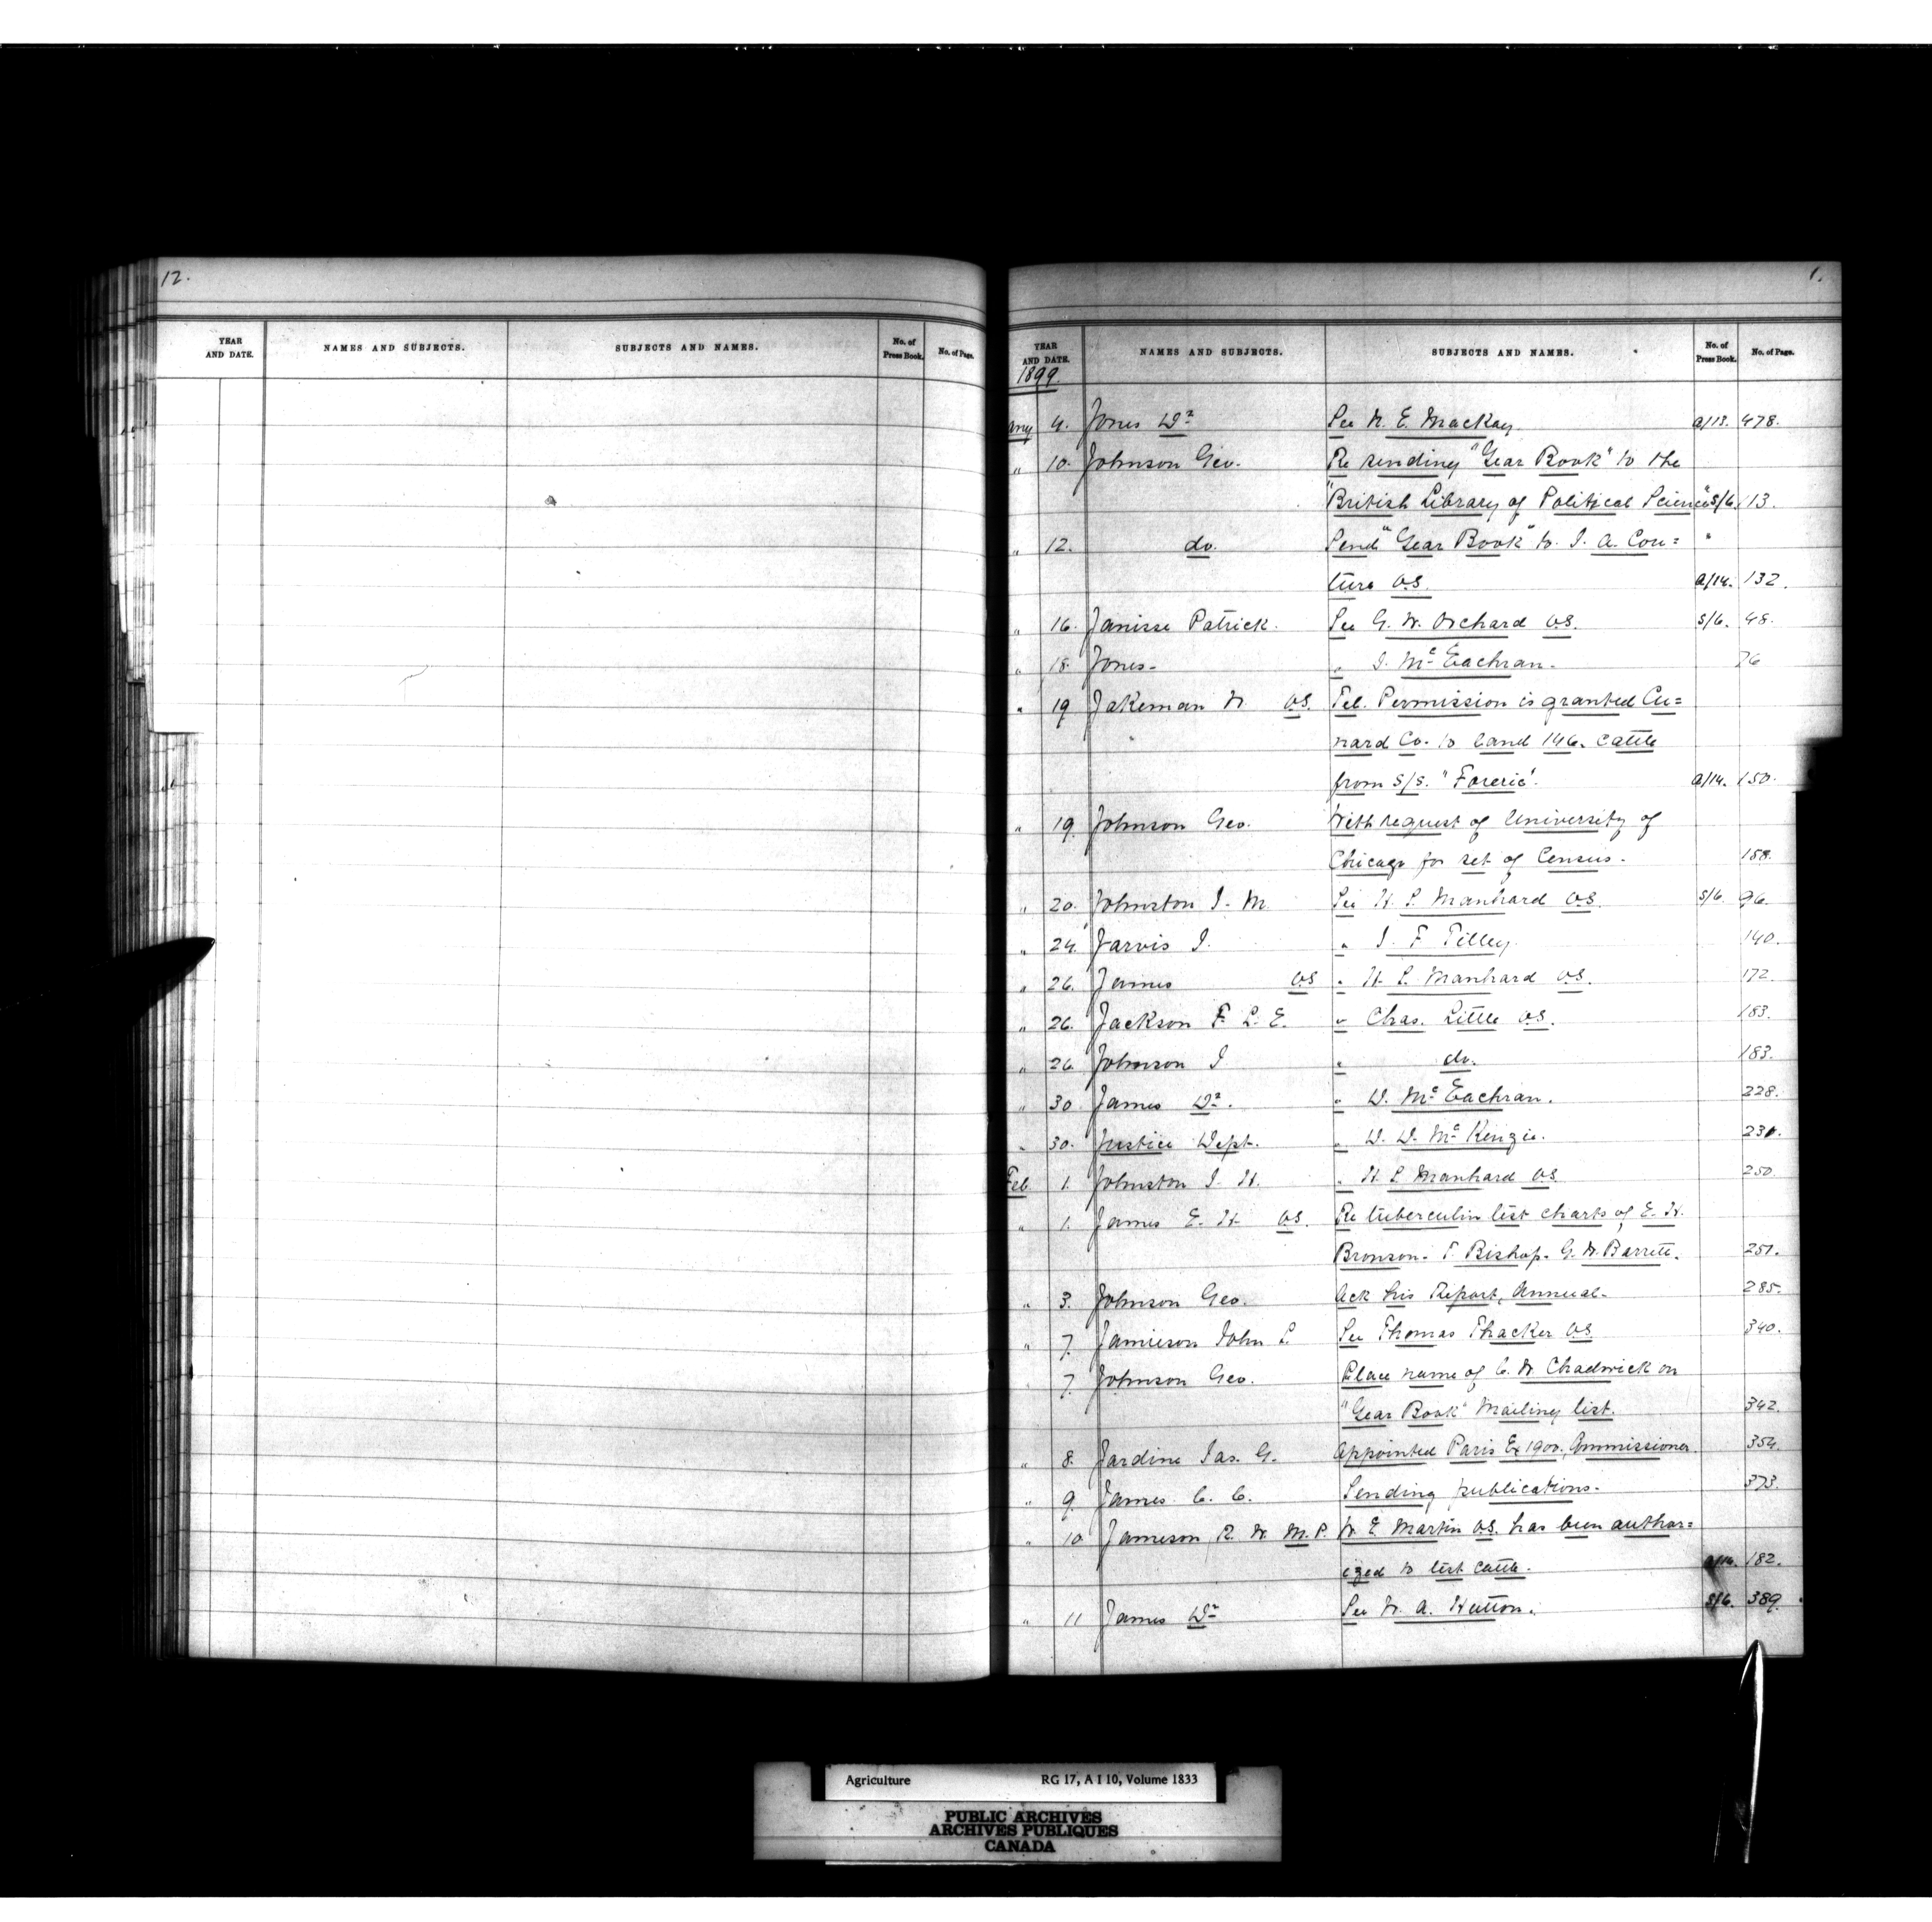 12.
YEAR AND DATE. NAMES AND SUBJECTS. SUBJECTS AND NAMES. No. of Press Book. No. of Page.
1.
YEAR AND DATE. NAMES AND SUBJECTS. SUBJECTS AND NAMES. No. of Press Book. No. of Page.
1899.
any 4. Jones Dr See N. E. MacKay a/13. 478.
" 10. Johnson Geo. Re sending "Year Book" to the
"British Library of Political Science" S/6. 13.
" 12. do. Send "Year Book" to J. A. Cou= "
ture V.S. a/14. 132.
" 16. Janisse Patrick. See G. W. Orchard V.S. S/6. 48.
" 18. Jones- " D. McEachran. 76
" 19 Jakeman W. V.S. Tel. Permission is granted Cu=
nard Co. to land 146. cattle
from S/S. "Foreric". a/14. 150.
" 19. Johnson Geo. With request of University of
Chicago for set of Census. 158.
" 20. Johnston J. M. See H. S. Manhard V.S. S/6. 96.
" 24. Jarvis J. " J. F Tilley. 140.
" 26. James V.S " H. S. Manhard V.S. 172.
" 26. Jackson F. L. E. " Chas. Little V.S. 183.
" 26. Johnson J " do. 183.
" 30 James Dr. " D. McEachran. 228.
" 30. Justice Dept. " D. D. McKenzie. 231.
Feb. 1. Johnston J. H. " H. S Manhard V.S 250.
" 1. James E. H. V.S. Re tuberculin test charts of E. H.
Bronson. T. Bishop. G. W. Barrett. 251.
" 3. Johnson Geo. Ack his Report, Annual. 285.
" 7. Jamieson John L See Thomas Thacker V.S 340.
" 7. Johnson Geo. Place name of C. W. Chadwick on
"Year Book" Mailing list. 342.
" 8. Jardine Jas. G. Appointed Paris Ex 1900. Commissioner. 354.
" 9. James. C. C. Sending publications. 373.
" 10 Jameson, R. W. M.P. W. E. Martin V.S. has been author=
ized to test cattle. a/14. 182.
" 11 James Dr See W. A. Hutton. S/6. 389.
Agriculture RG 17, A I 10, Volume 1833
PUBLIC ARCHIVES
ARCHIVES PUBLIQUES
CANADA